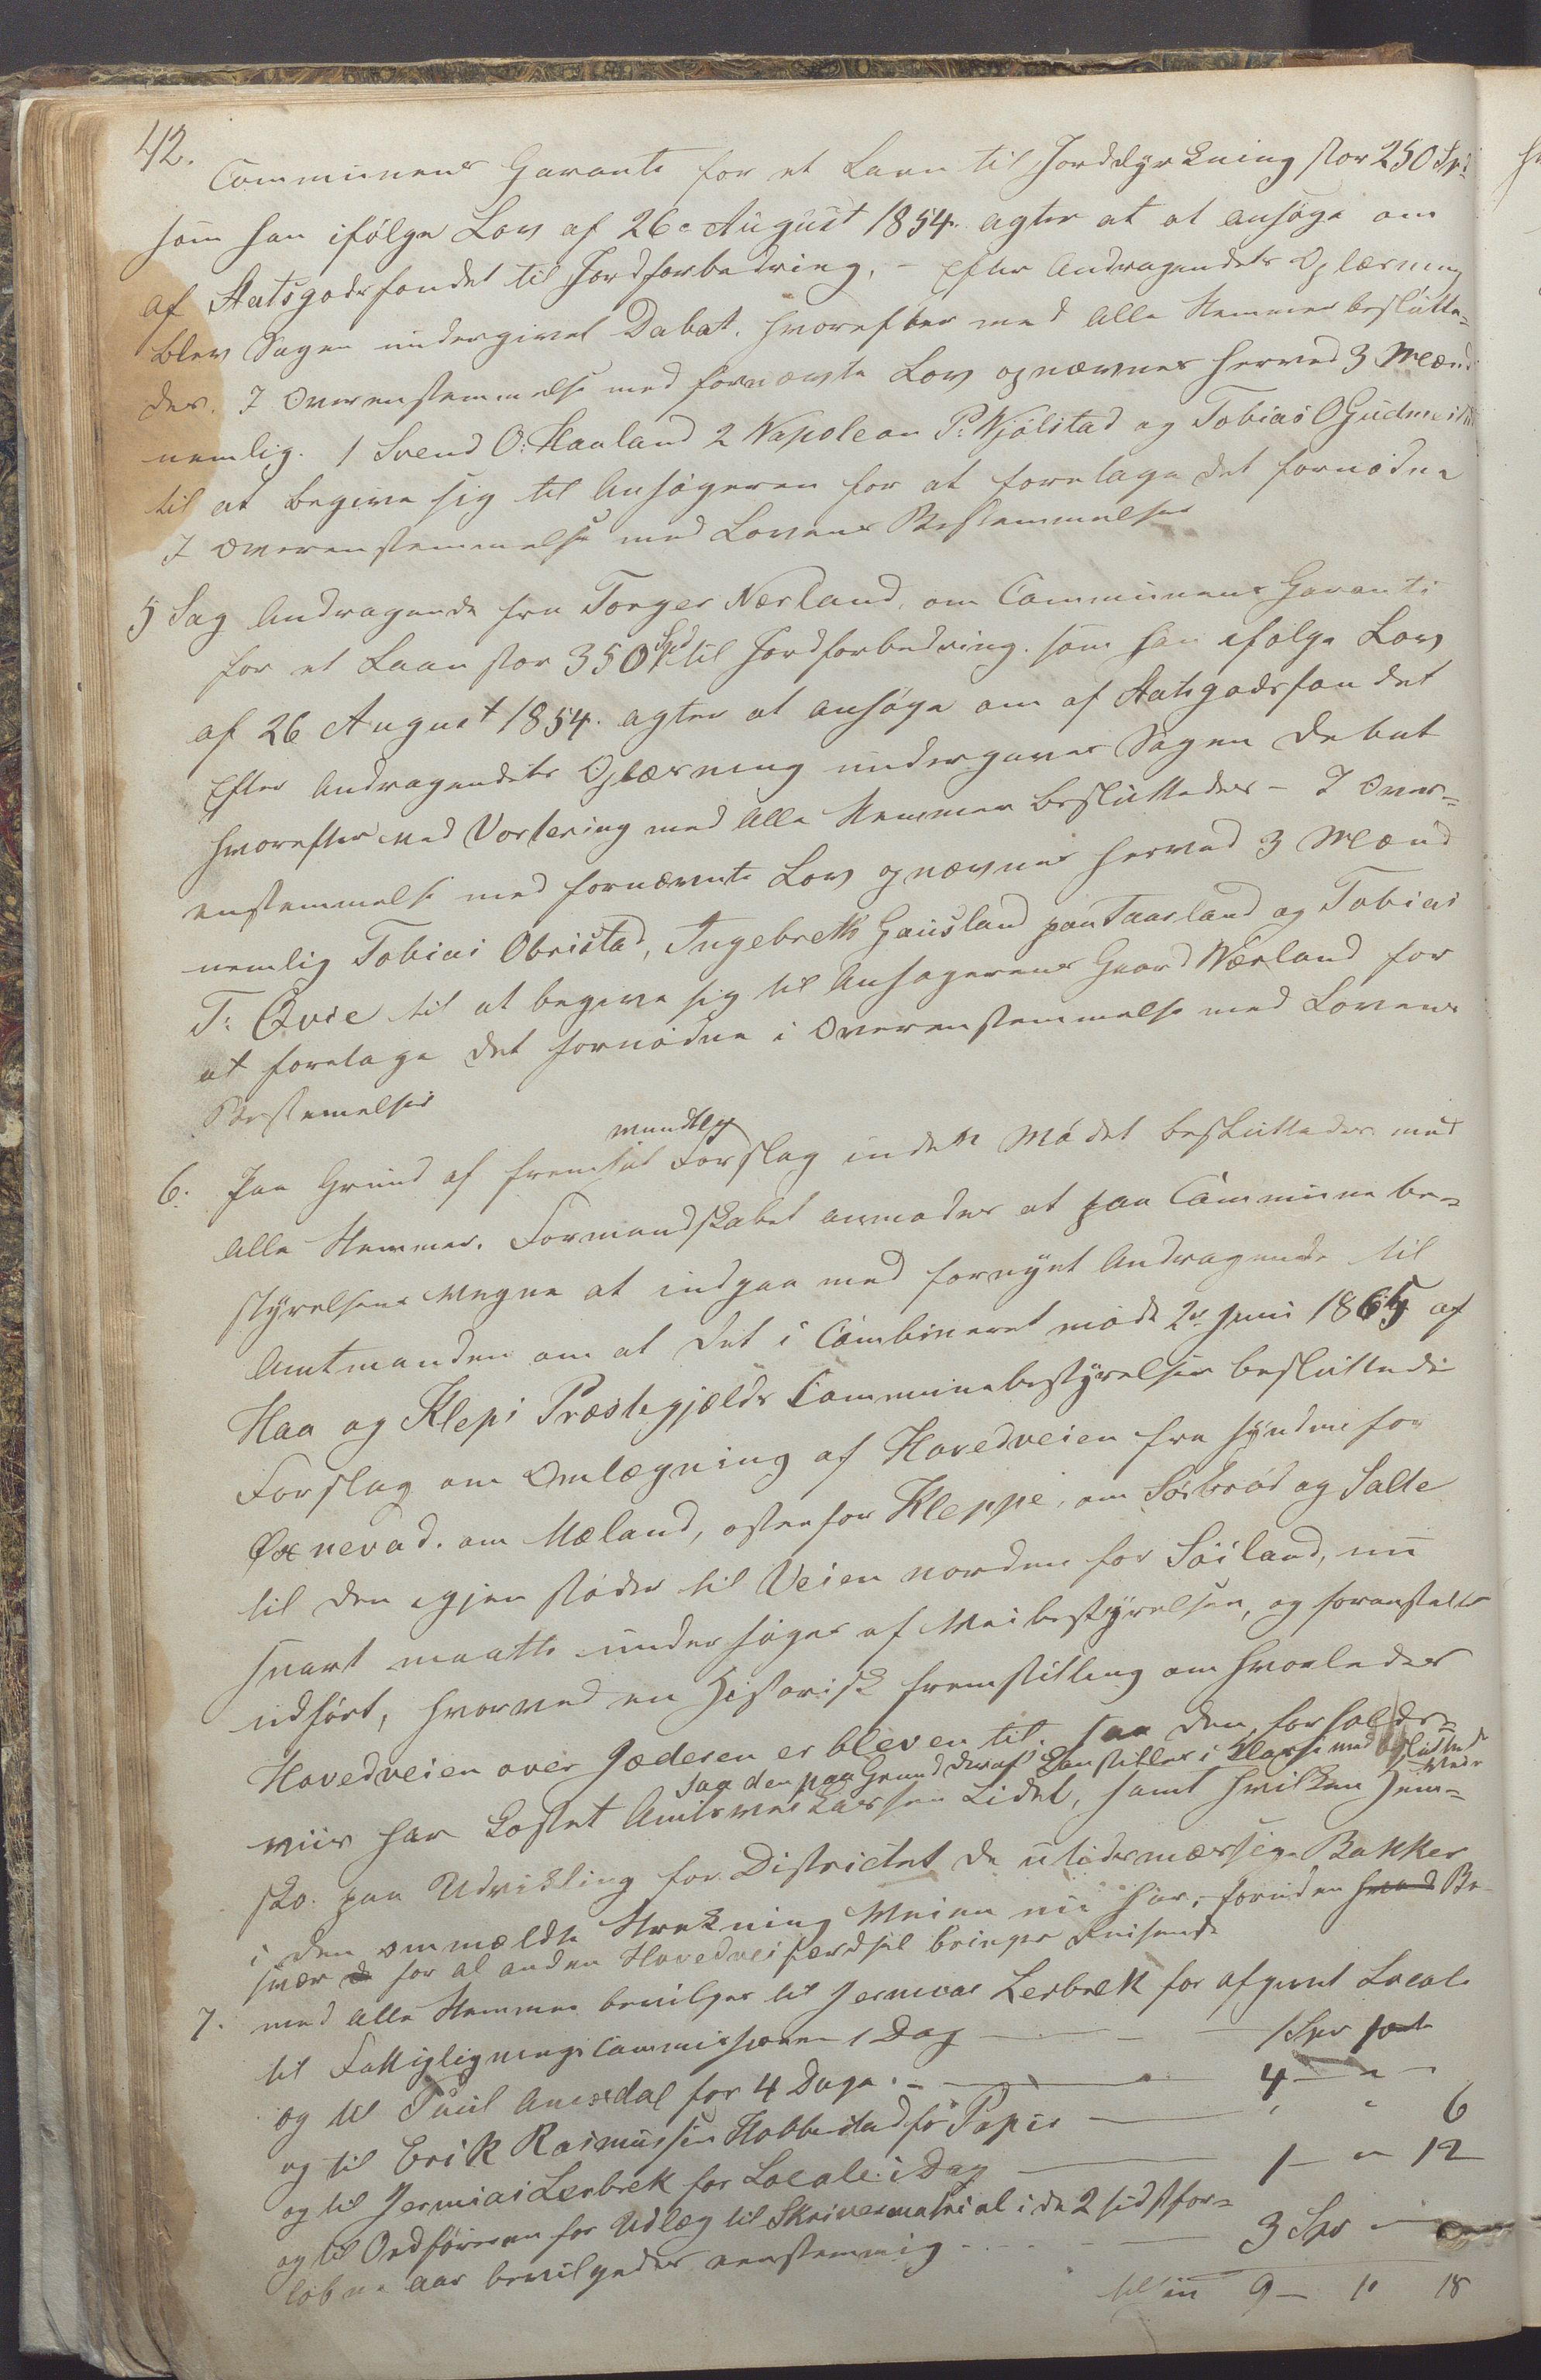 42.
Communens Garanti for et Laan til Jorddyrkning stor 250 Spd
som han ifølge Lov af 26e August 1854 agter at at ansøge om
af Statsgodsfondet til Jordforbedring, – Efter Andragendets Oplæsning
blev Sagen undergivet Debat, hvorefter med alle Stemmer beslutte-
des. I Overenstemmelse med fornævnte Lov opnævnes herved 3 Mænd
nemlig. 1 Svend O: Haaland 2 Napoleon P: Njølstad og Tobias O
til at begive sig til Ansøgeren for at foretage det fornødne
I Overenstemmelse med Lovens Bestemmelser
5 Sag Andragende fra Torger Nærland, om Communens Garanti
for et Laan stor 350 Spd til Jordforbedring. som han ifølge Lov
af 26 August 1854. agter at ansøge om af Statsgodsfondet
Efter Andragendets Oplæsning undergaves Sagen Debat
hvorefter ved Vortering med alle Stemmer besluttedes – I Over-
enstemmelse med fornævnte Lov opnævnes herved 3 Mænd
nemlig Tobias Obristad, Ingebreth Gausland paa Taarland og Tobias
T: Qvie til at begive sig til Ansøgerens Gaard Nærland for
at foretage det fornødne i Overenstemmelse med Lovens
Bestemelser
mundtlig
6. Paa Grund af fremsat Forslag in dette Mødet besluttedes med
alle Stemmer. Formandskabet anmodes at paa Commune be-
styrelsens Vegne at indgaa med fornyet Andragende til
Amtmanden om at det i Combineret møde 2de Juni 1865 af
Haa og Klepi Præstegjælds Communebestyrelser besluttede
Forslag om Omlægning af Hovedveien fra syndenfor
Øxnevad. om Mæland, østenfor Kleppe, om Sørbrød og Salte
til den igjen støder til Veien nordenfor Søiland, nu
snart maatte undersøges af Veibestyrelsen, og foranstaltes
udført, hvorved en Historisk fremstilling om hvorledes
Hovedveien over Jæderen er bleven til. saa den forholds-
saa den paa Grund deraf kan stilles i Klasse med
viis har kostet Amtsveikassen Lidet, samt hvilken Hem-
sko. paa Udvikling for Districtet de utidsmæssige Bakker
i den ommældte Strækning Veien nu har, foruden Be-
svær for al anden Hovedveifærdsel bringer Reisende
7. med alle Stemmer bevilges til Jermias Lerbrek for afgivet Locale
til Fattigligningscommissionen 1 Dag — 1 Spd
og til Tunil Aniksdal for 4 Dage. — 4 — " —
og til Erik Rasmussen Hobberstad for Papir — " " 6
og til Jermias Lerbrek for Locale i Dag — 1 – " 12
og til Ordføreren for Udlæg til Skrivematrial i de 2 sidst for-
løbne aar bevilgedes eenstemmig — 3 Spd —
9 – " 18